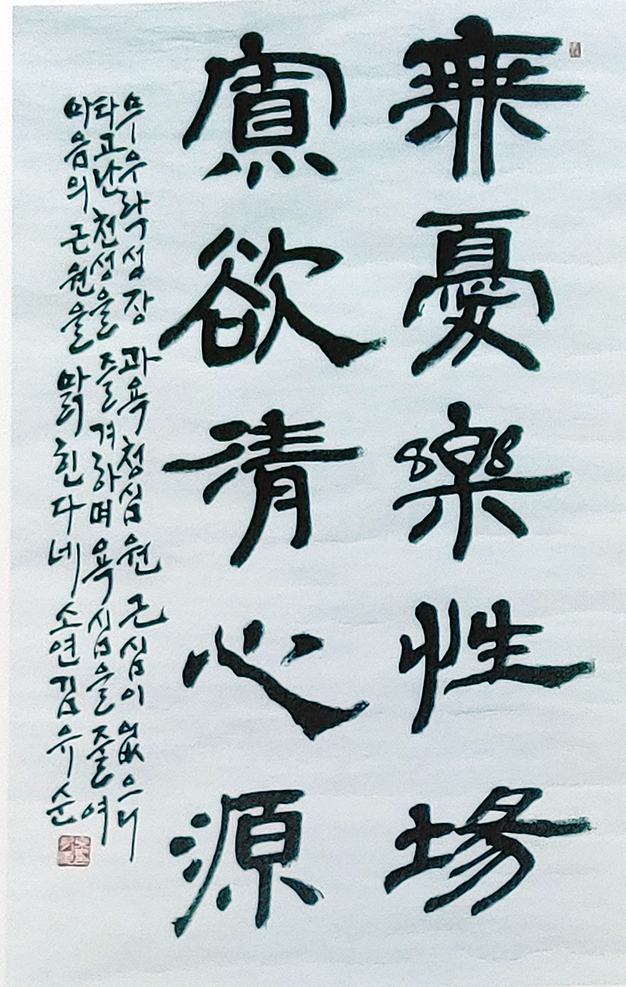 無憂樂性場
寡欲清心源
무우락성장 과욕청심원 근심이 없으니
타고난 천성을 즐겨하며 욕심을 줄여
마음의 근원을 맑힌다네 소연 김유순